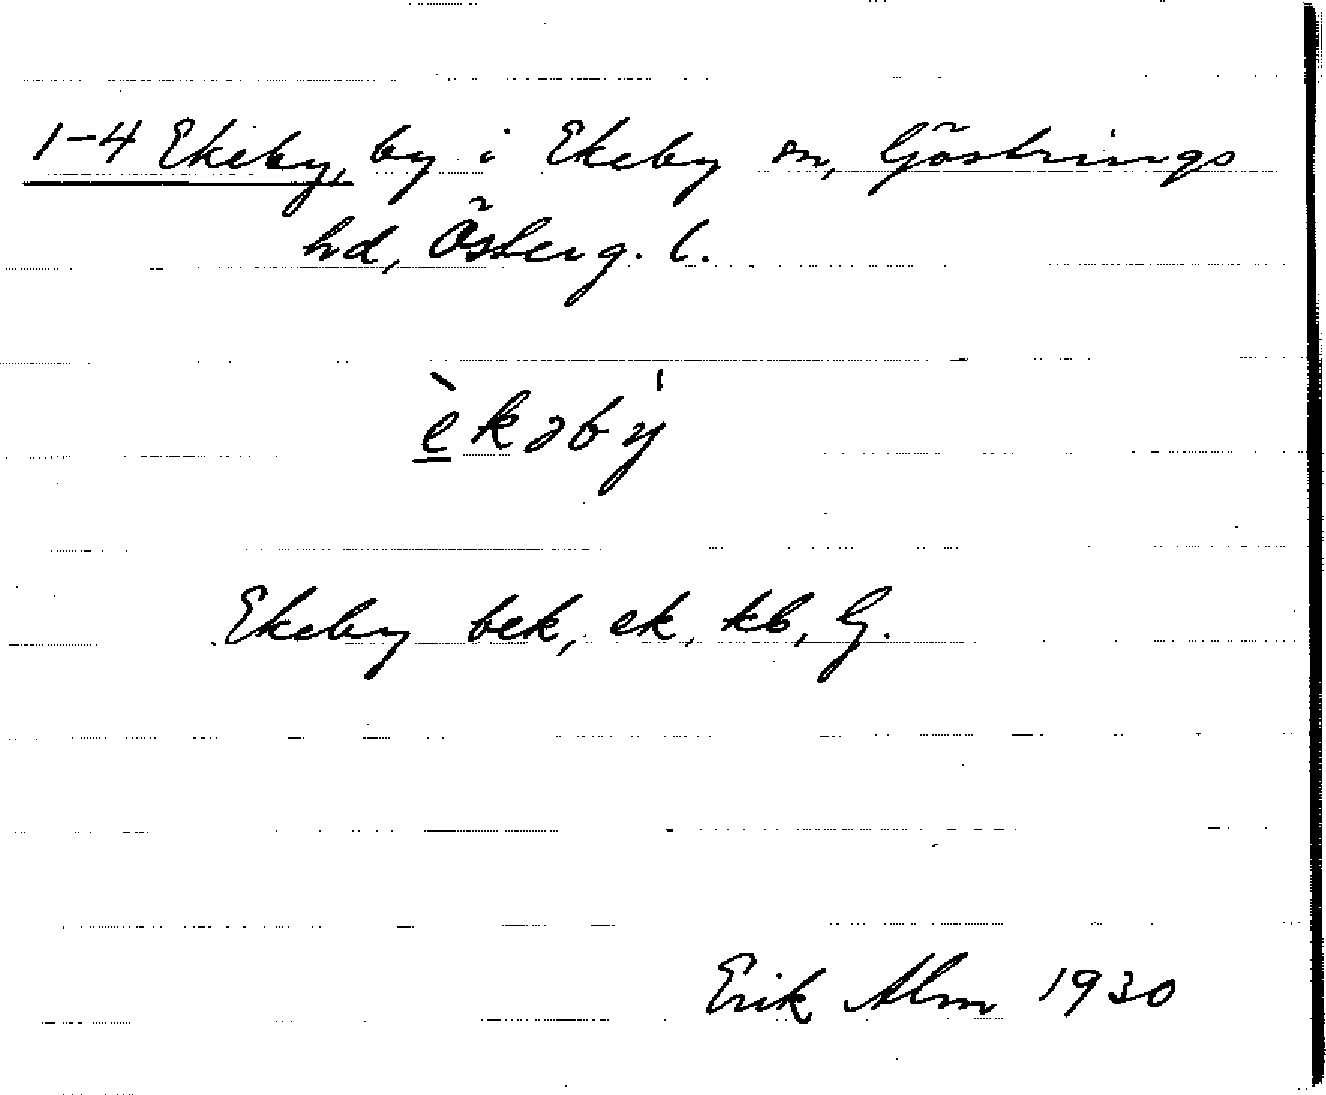 1-4 Ekeby, by i Ekeby sn, Göstrings
hd, Österg. l.
èkəbý
Ekeby bek, ek, kb, G.
Erik Alm 1930